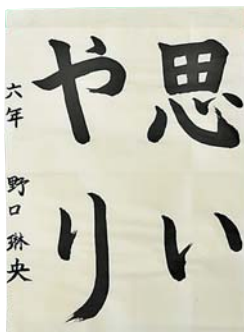 思い
やり
六年 野口琳央